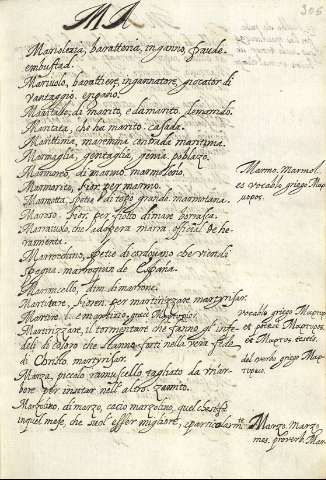 MA
305
Marioleria, baratteria, inganno, fraude.
embustad.
Mariuolo, barattiere, ingannatore, giocator di
vantaggio. engano.
Maritale, di marito, e da marito. de marido.
Maritata, che ha marito. casada.
Marittima, maremma contrada maritima.
Marmaglia, gentaglia, genia poblazo.
Marmoreo, di marmo. marmoleno
Marmorito, fior. per marmo.
Marmotta, spetie di topo grande. marmotana.
Maroso, fior. per fiotto di mare borrasca.
Marraiuolo, che adopera marra. official de he-
ramenta.
Marrocchino, spetie di cordovano che vien di
Spagna. marroquin de Espana.
Marroncello, dim. di marrone.
Martirare, fioren. per martirizzare martyrisar.
Martirizzare, il tormentare che fanno gl'infe-
deli di coloro che stanno forti nella vera fede
di Christo. martyrisar.
Marza, piccolo ramuscello tagliato da un ar-
bore per inestar nell'altro.
Marzolino, di marzo, cacio marzolino, quel che si fa
in quel mese, che suol esser migliore, e particolarmte.
Marmo. Marmol.
es vocablo griego Μαρ
μαρος.
vocablo griego Μαρτυρ.
et poetice Μαρτυρος
et Μαρτυς testis.
del verbo griego Μαρ
τυρεω.
Marzo. Marzo
mes. proverb. Mar